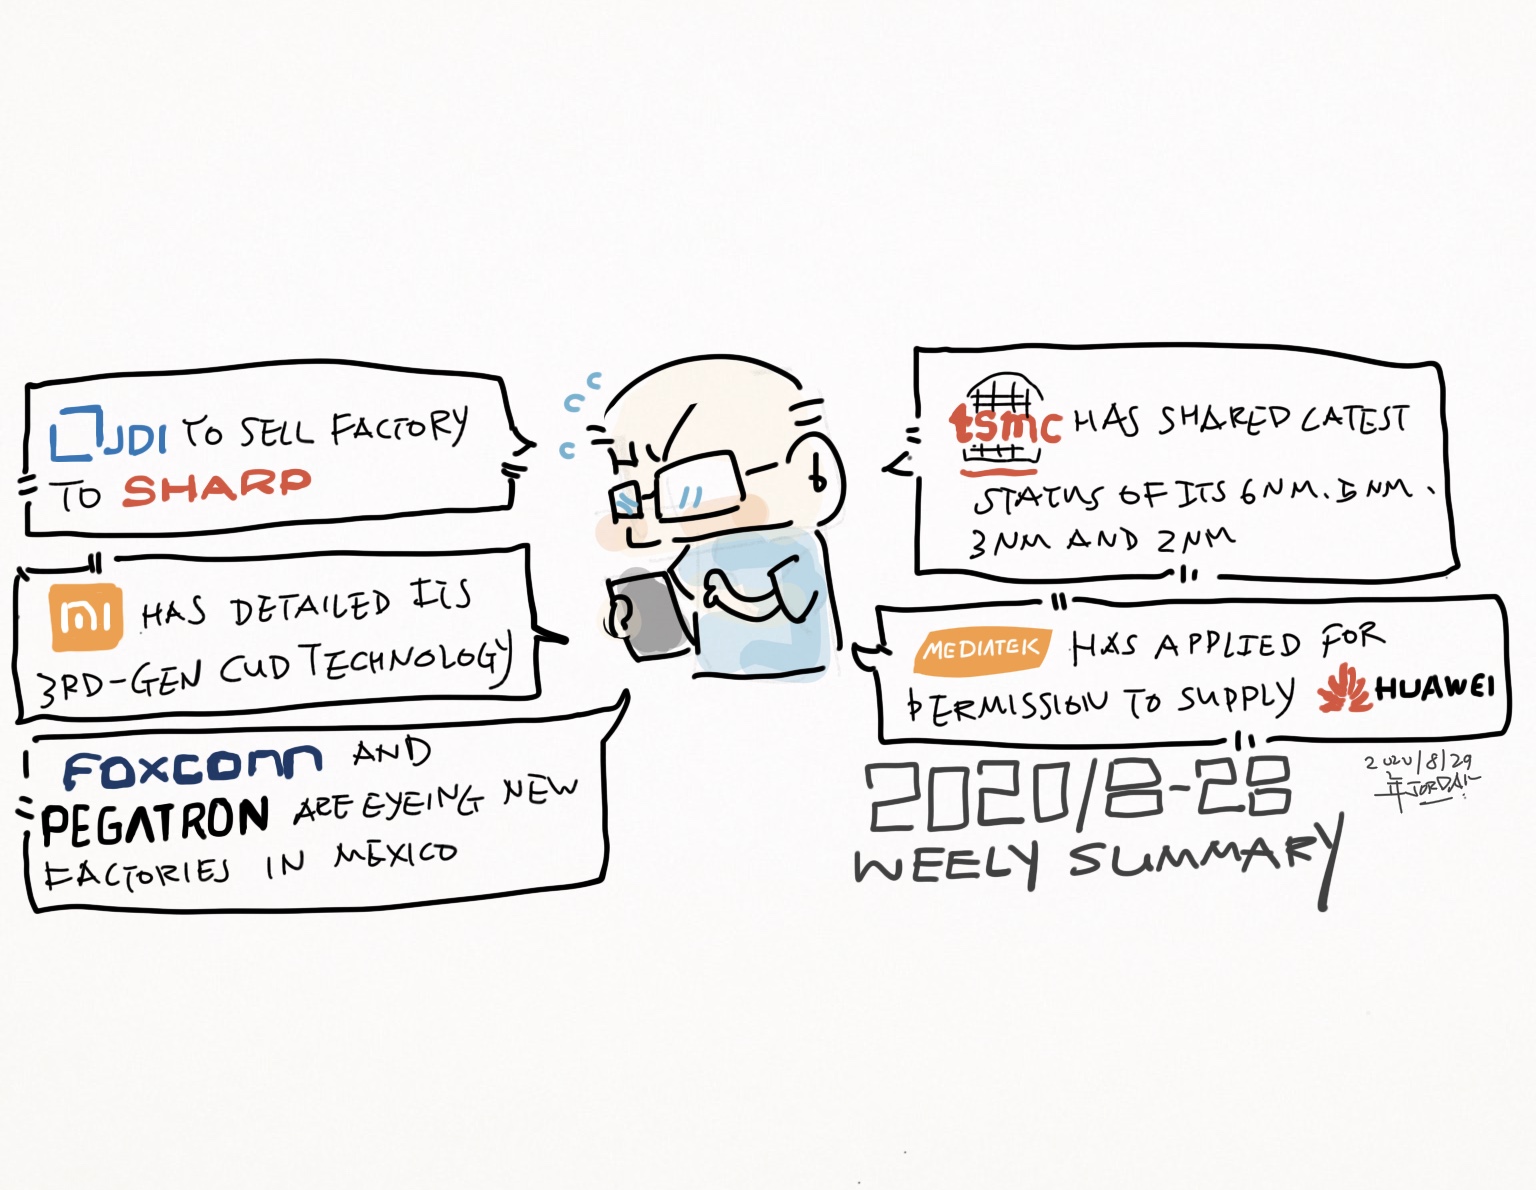 JDI TO SELL FACTORY
TO SHARP
MI HAS DETAILED ITS
3RD-GEN CUD TECHNOLOGY
FOXCONN AND
PEGATRON ARE EYEING NEW
FACTORIES IN MEXICO
tsmc HAS SHARED LATEST
STATUS OF ITS 6NM. 5NM.
3NM AND 2NM
MEDIATEK HAS APPLIED FOR
PERMISSION TO SUPPLY HUAWEI
2020/8-28
WEELY SUMMARY
2020/8/29
JORDAN